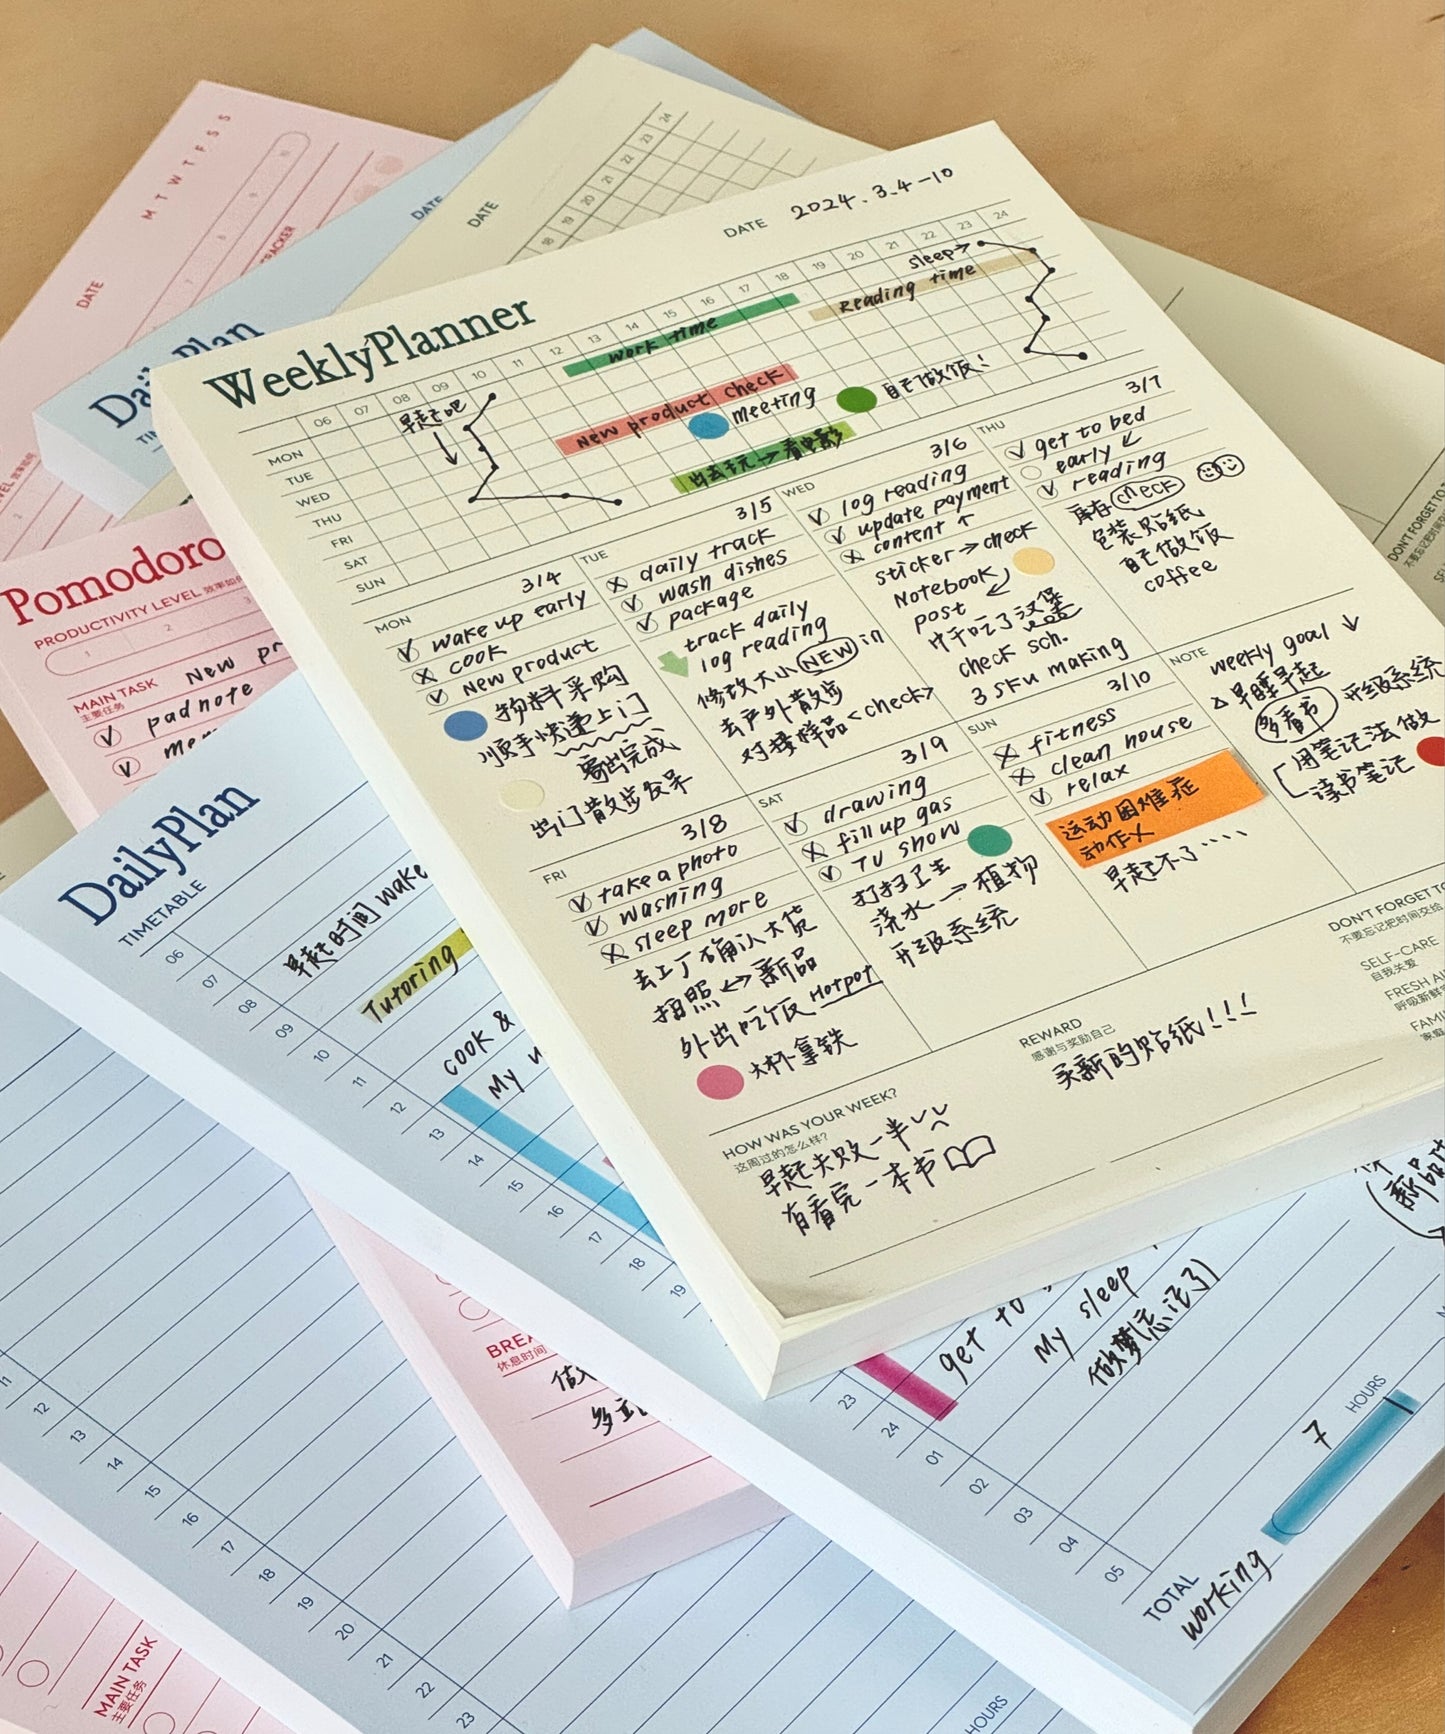 WeeklyPlanner
DATE 2024.3.4-10
06 07 08 09 10 11 12 13 14 15 16 17 18 19 20 21 22 23 24
MON
TUE
WED
THU
FRI
SAT
SUN
早起吧
work time
sleep→
Reading time
New product check
meeting
自己做饭!
出去玩→看电影
MON 3/4
wake up early
cook
New product
物料采购
顺手快递上门
寄出完成
出门散步发呆
TUE 3/5
daily track
wash dishes
package
track daily
log reading
修改大小 NEW in
去户外散步
对接样品<check>
WED 3/6
log reading
update payment
content ↑
sticker→check
Notebook
post
中午吃了汉堡
check sch.
3 sku making
THU 3/7
get to bed
early
reading
库存 check
包装贴纸
自己做饭
coffee
FRI 3/8
take a photo
washing
sleep more
去工厂确认大货
拍照↔新品
外出吃饭 Hotpot
大杯拿铁
SAT 3/9
drawing
fill up gas
TV show
打扫卫生
浇水→植物
升级系统
SUN 3/10
fitness
clean house
relax
运动困难症
动作乂
早起不了····
NOTE
weekly goal ↓
△早睡早起
多看书 升级系统
用笔记法做
读书笔记
DON'T FORGET TO
不要忘记把时间交给
SELF-CARE
自我关爱
FRESH AI
呼吸新鲜
FAMI
家庭
REWARD
感谢与奖励自己
买新的贴纸!!!
HOW WAS YOUR WEEK?
这周过的怎么样?
早起失败一半
有看完一本书
M T W T F S S
DATE
TRACKER
DATE
DATE
18 19 20 21 22 23 24
DailyPlan
Pomodoro
PRODUCTIVITY LEVEL
1 2 3
MAIN TASK New pr
主要任务
padnote
mem
DailyPlan
TIMETABLE
06
07
08
09
10
11
12
13
14
15
16
17
18
19
早起时间 wake
Tutoring
cook &
My
get to
My sleep
做梦(忘记了)
新品
23
24
01
02
03
04
05
7 HOURS
TOTAL
working
BREA
休息时间
做
多
11
12
13
14
15
16
17
18
19
20
21
22
23
MAIN TASK
主要任务
HOURS
DON'T FORGET TO